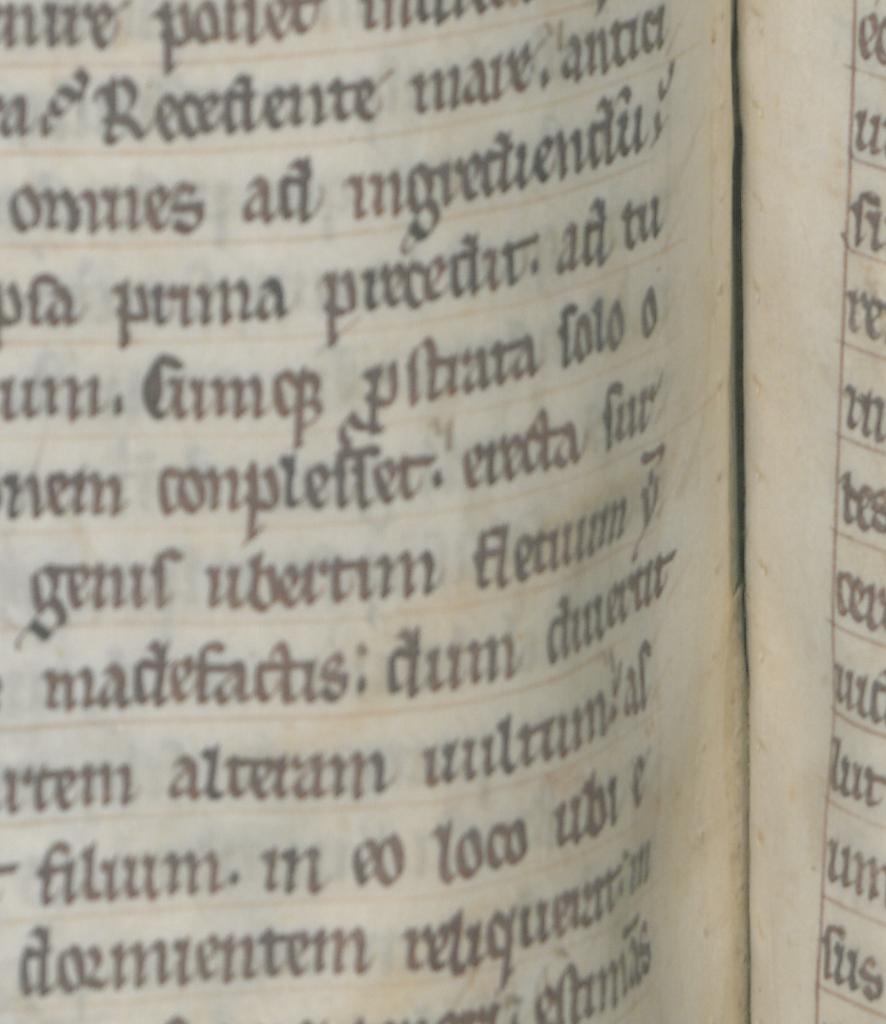 posset
Recedente mare. antici
omnes ad ingrediendū.
psa prima precedit. ad tu
um. Cumq; ꝓstrata solo o
onem conplesset. erecta sur
genis ubertim fletuum ṽ
madefactis: dum diuertit
artem alteram uultum. as
filium. in eo loco ubi e
dormientem reliquerat: in
estimās
u
si
re
tes
cer
lut
um
sus